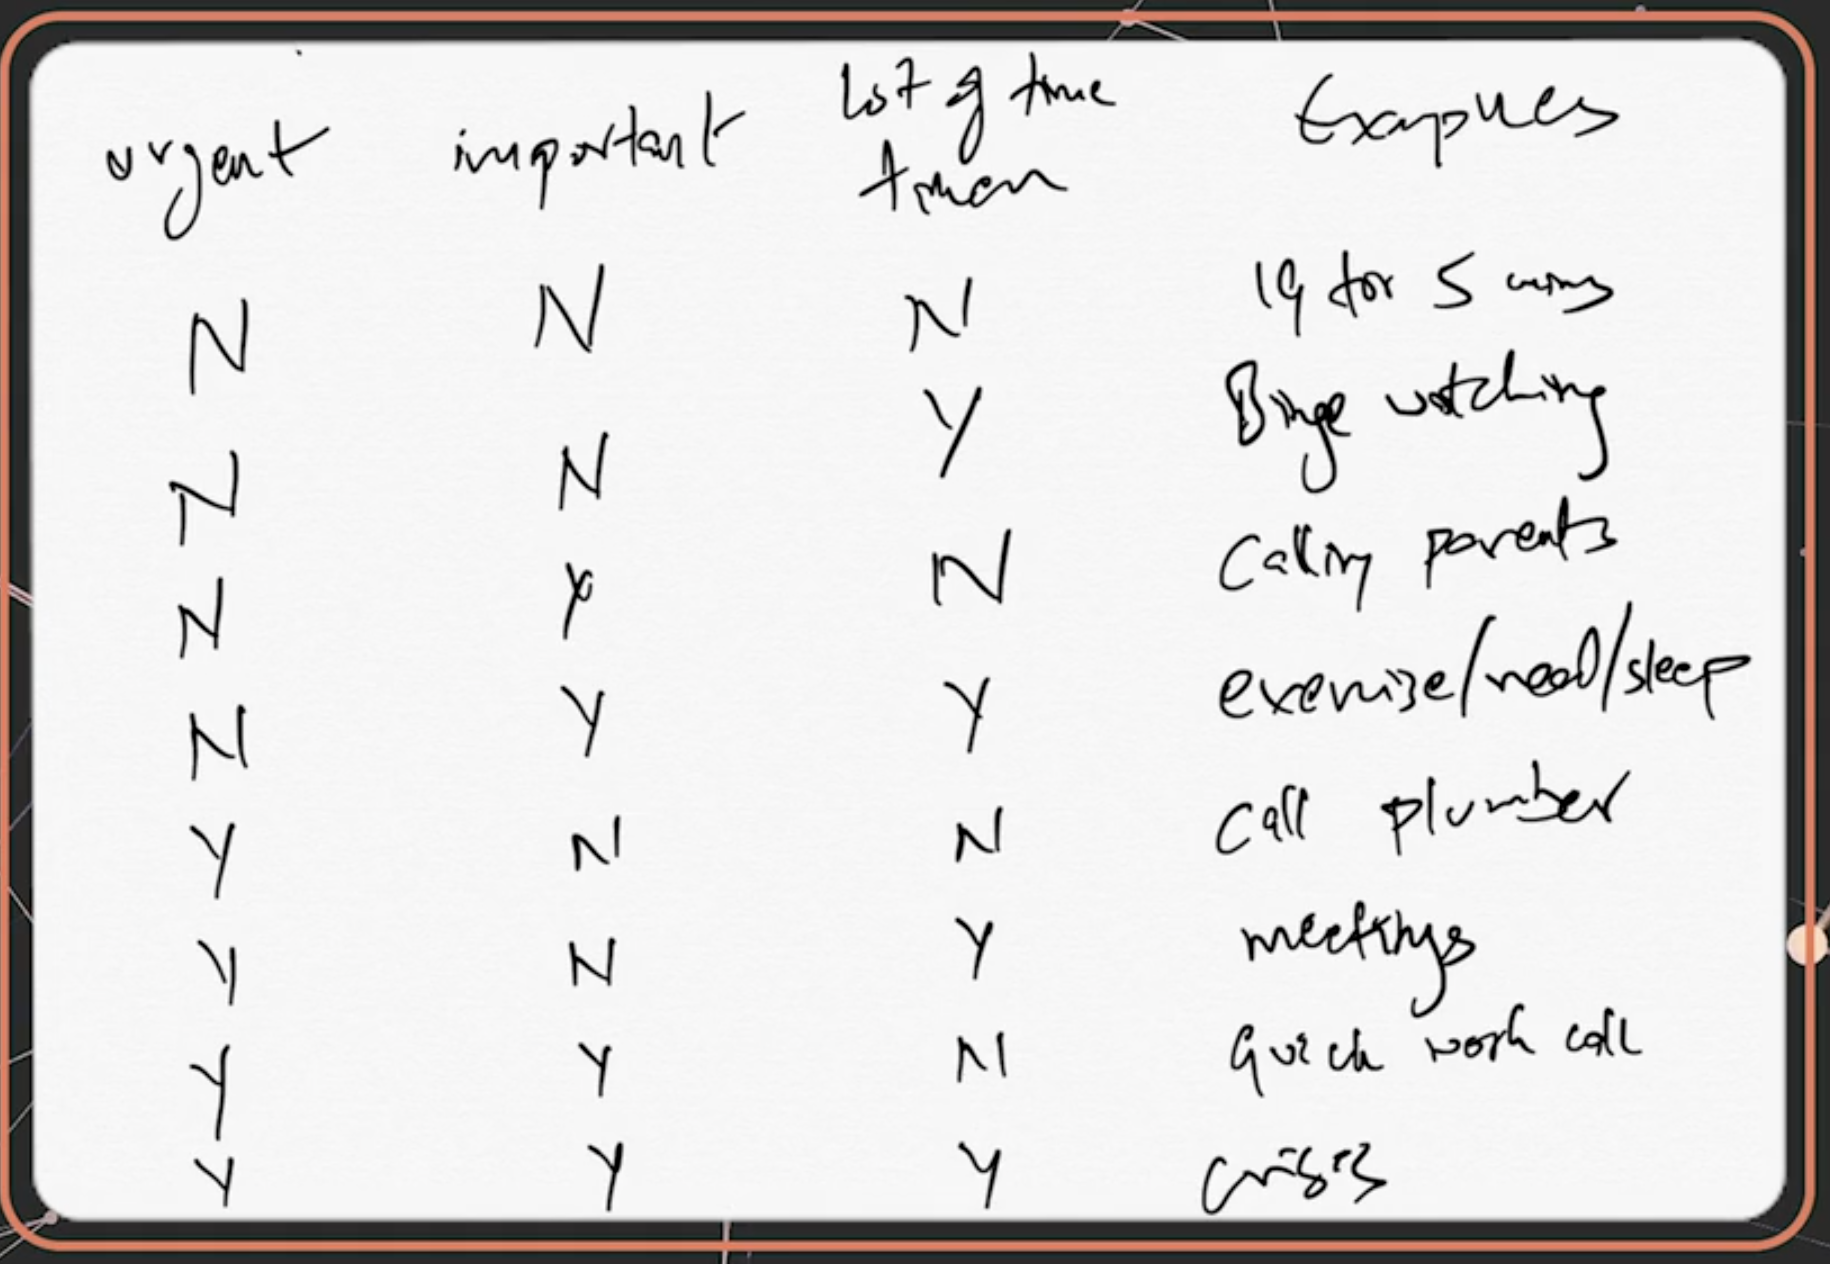 urgent important lot of time Examples
taken
N N N IG for 5 mins
N N Y Binge watching
N Y N Calling parents
N Y Y exercise/read/sleep
Y N N Call plumber
Y N Y meetings
Y Y N Quick work call
Y Y Y crisis